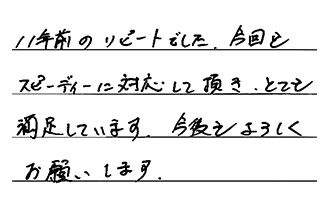 11年前のリピートでした。今回も
スピーディーに対応して頂き、とても
満足しています。今後もよろしく
お願いします。